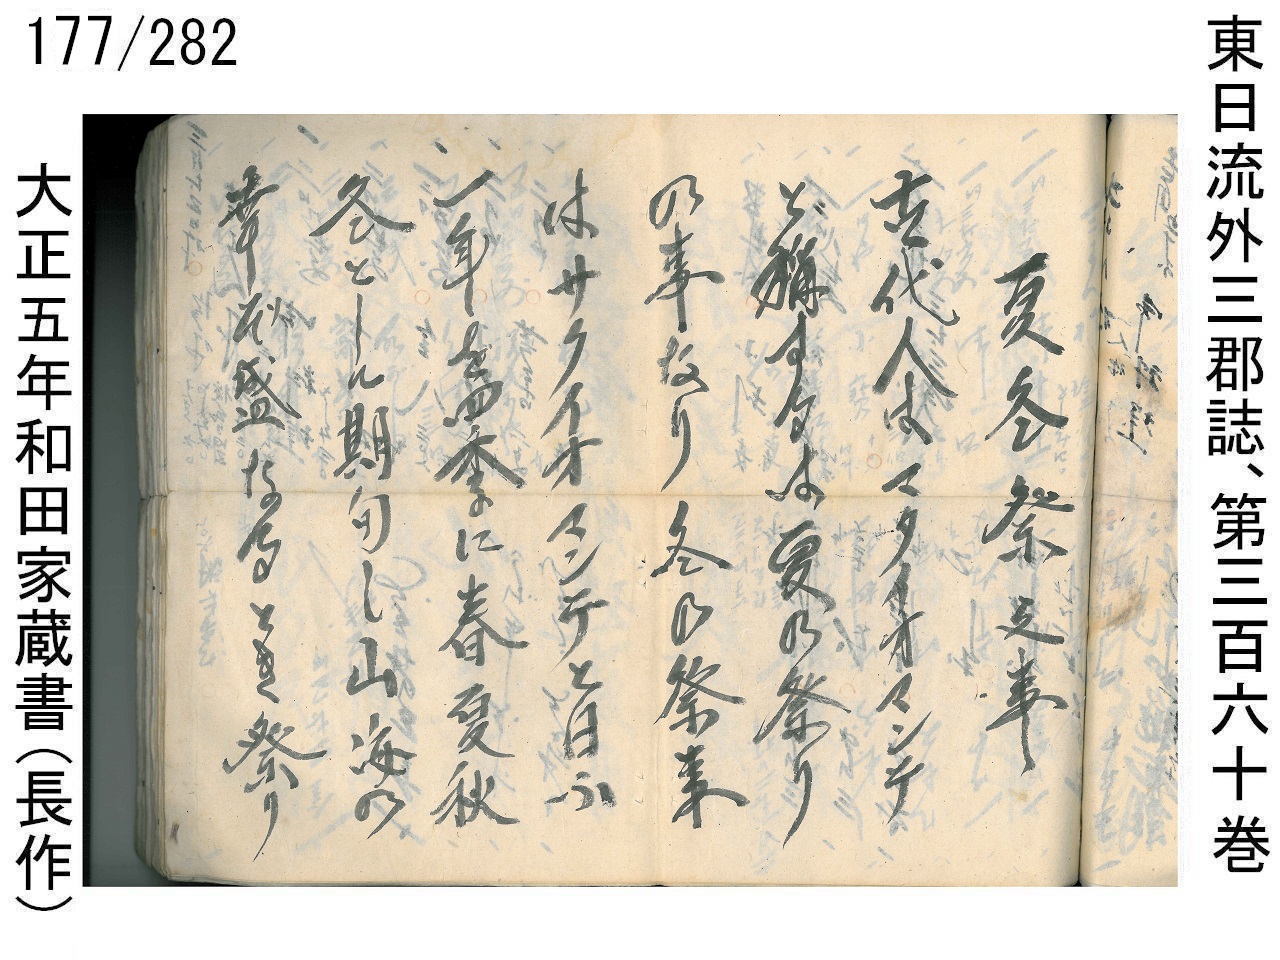 177/282
東日流外三郡誌、第三百六十巻
夏冬祭之事
古代人はマタイオマンテ
と稱するは夏の祭り
の事なり冬の祭事
はサクイオマンテと曰ふ
一年を四季に春夏秋
冬とし期旬し山海の
幸が盛なるとき祭り
大正五年和田家蔵書（長作）